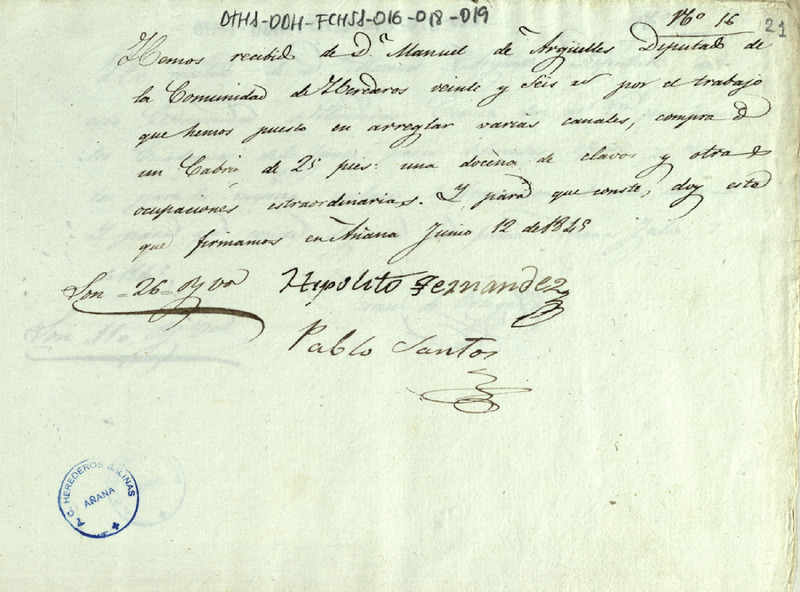 DTHS-DDH-FCHSS-016-018-019
Nº 16
21
Hemos recibido de Dn. Manuel de Argüelles Deputado de
la Comunidad de Herederos veinte y Seis rs por el trabajo
que hemos puesto en arreglar varias canales, compra de
un Cabrio de 25 pies: una docena de clavos y otras
ocupaciones estraordinarias. Y para que conste, doy esta
que firmamos en Añana Junio 12 de 1845
Son = 26 = rs von
Hipolito Fernandez
Pablo Santos
A. C. HEREDEROS SALINAS
AÑANA